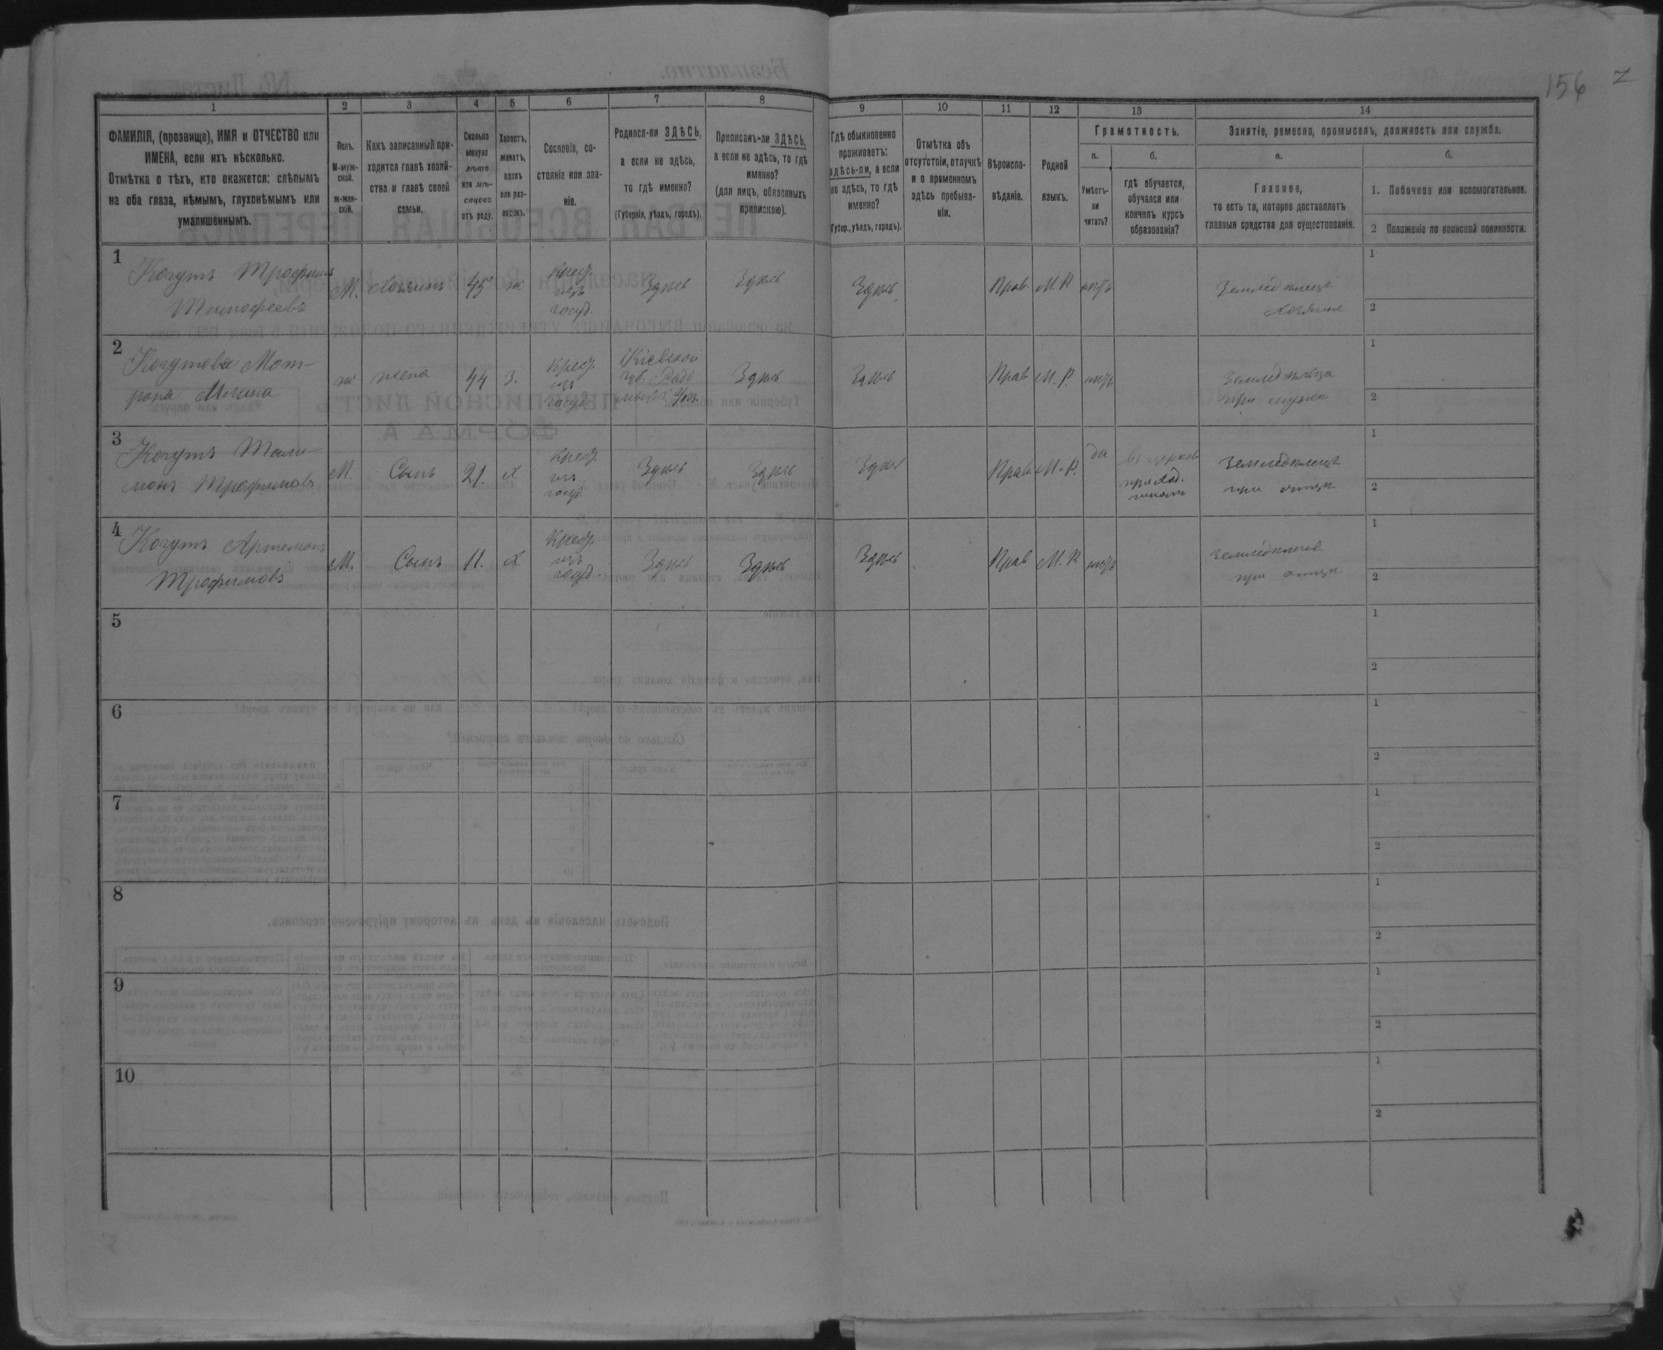 156
1 2 3 4 5 6 7 8 9 10 11 12 13 14
ФАМИЛІЯ, (прозвище), ИМЯ и ОТЧЕСТВО или
ИМЕНА, если ихъ нѣсколько.
Отмѣтка о тѣхъ, кто окажется: слѣпымъ
на оба глаза, нѣмымъ, глухонѣмымъ или
умалишеннымъ.
Полъ.
М-муж-
ской.
ж-жен-
скій.
Какъ записанный при-
ходится главѣ хозяй-
ства и главѣ своей
семьи.
Сколько
минуло
лѣтъ
или мѣ-
сяцевъ
отъ роду.
Холостъ,
женатъ,
вдовъ
или раз-
веденъ.
Сословіе, со-
стояніе или зва-
ніе.
Родился-ли ЗДѢСЬ,
а если не здѣсь,
то гдѣ именно?
(Губернія, уѣздъ, городъ).
Приписанъ-ли ЗДѢСЬ,
а если не здѣсь, то гдѣ
именно?
(для лицъ, обязанныхъ
припискою).
Гдѣ обыкновенно
проживаетъ:
здѣсь-ли, а если
не здѣсь, то гдѣ
именно?
(Губер., уѣздъ, городъ).
Отмѣтка объ
отсутствіи, отлучкѣ
и о временномъ
здѣсь пребыва-
ніи.
Вѣроиспо-
вѣданіе.
Родной
языкъ.
Грамотность.
а.
Умѣетъ-
ли
читать?
б.
гдѣ обучается,
обучался или
кончилъ курсъ
образованія?
Занятіе, ремесло, промыселъ, должность или служба.
а.
Главное,
то есть то, которое доставляетъ
главныя средства для существованія.
б.
1. Побочное или вспомогательное.
2 Положеніе по воинской повинности.
1
Когутъ Трофимъ
Тимофеевъ
М. Хозяинъ 45 ж
Крест.
изъ
госуд.
Здѣсь Здѣсь Здѣсь Прав М.Р. нѣтъ
Земледѣлецъ
хозяинъ
1
2
2
Когутова Мот-
рона
ж жена 44 З.
Крест.
изъ
госуд.
Кіевской
губ. Радо
Здѣсь Здѣсь Прав М.Р. нѣтъ
Земледѣлица
при мужѣ
1
2
3
Когутъ
Трофимовъ
М. Сынъ 21. Х
Крест.
изъ
госуд.
Здѣсь Здѣсь Здѣсь Прав М.Р. да
Земледѣлецъ
при отцѣ
1
2
4
Когутъ Артемонъ
Трофимовъ
М. Сынъ 11. Х
Крест.
изъ
госуд.
Здѣсь Здѣсь Здѣсь Прав М.Р. нѣтъ
Земледѣлецъ
при отцѣ
1
2
5
1
2
6
1
2
7
1
2
8
1
2
9
1
2
10
1
2